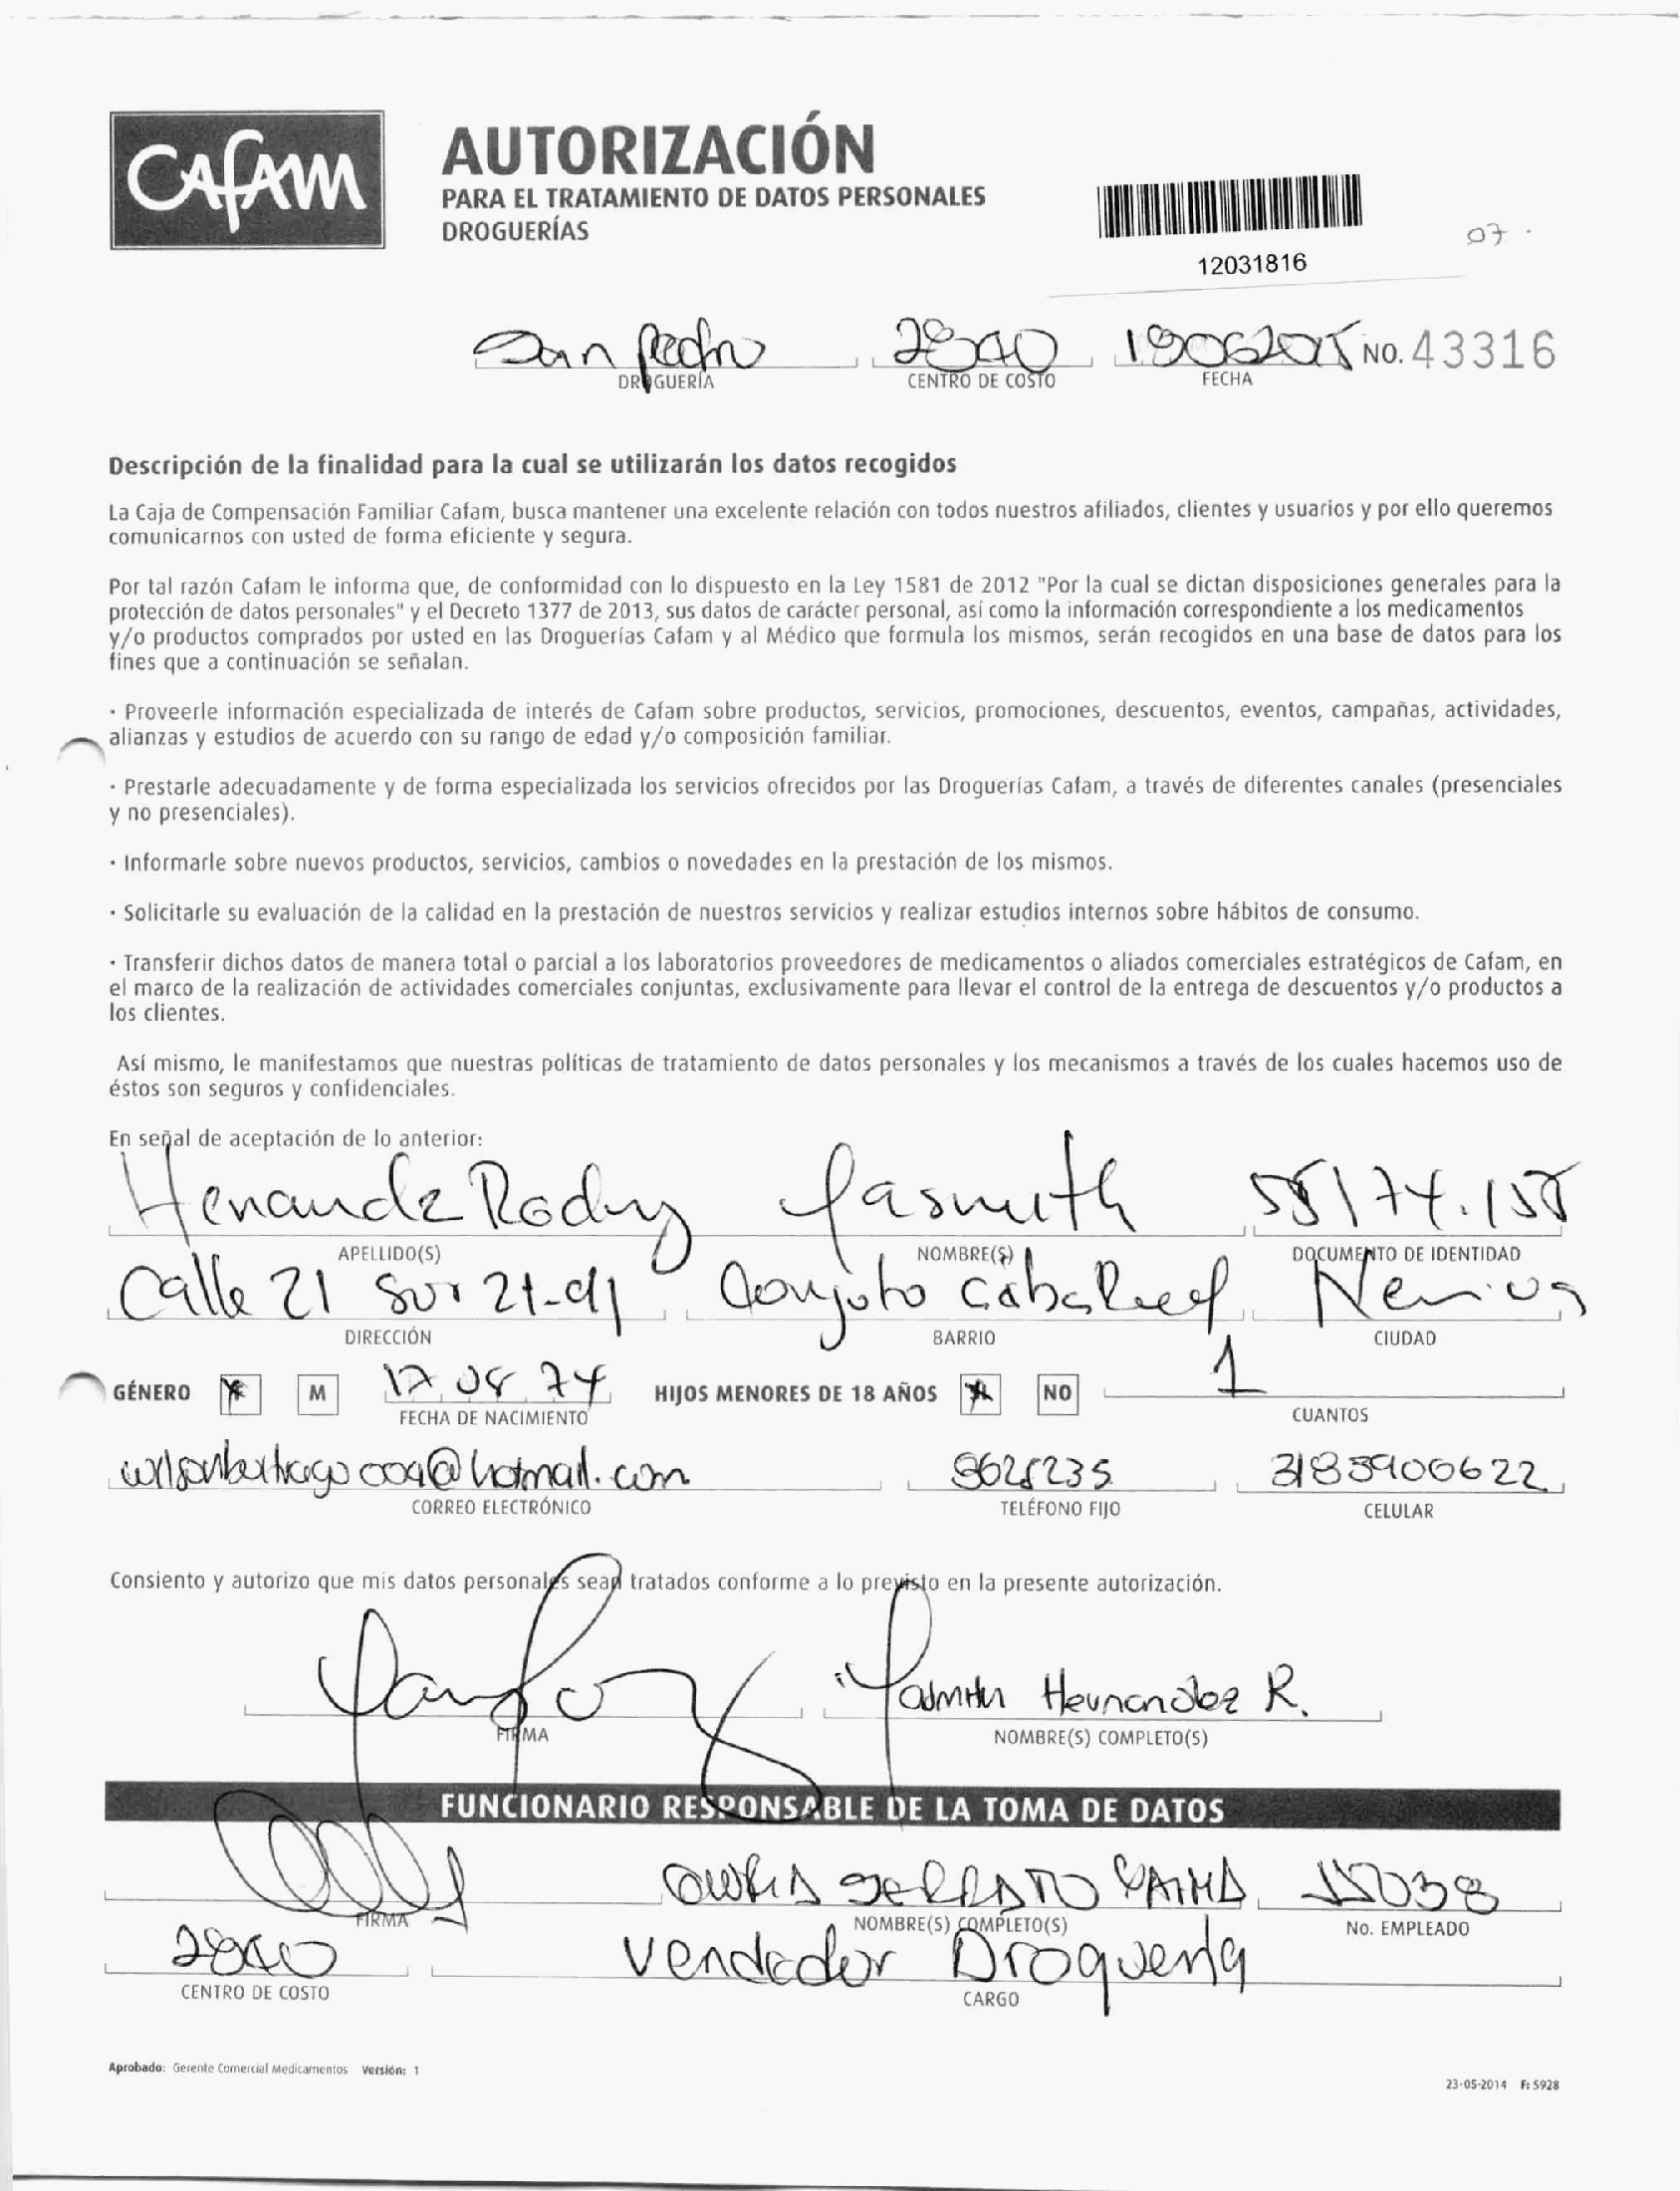 CAFAM
AUTORIZACIÓN
PARA EL TRATAMIENTO DE DATOS PERSONALES
DROGUERÍAS
12031816
07.
San Pedro 2840 19062015 NO. 43316
DROGUERÍA CENTRO DE COSTO FECHA
Descripción de la finalidad para la cual se utilizarán los datos recogidos
La Caja de Compensación Familiar Cafam, busca mantener una excelente relación con todos nuestros afiliados, clientes y usuarios y por ello queremos
comunicarnos con usted de forma eficiente y segura.
Por tal razón Cafam le informa que, de conformidad con lo dispuesto en la Ley 1581 de 2012 "Por la cual se dictan disposiciones generales para la
protección de datos personales" y el Decreto 1377 de 2013, sus datos de carácter personal, así como la información correspondiente a los medicamentos
y/o productos comprados por usted en las Droguerías Cafam y al Médico que formula los mismos, serán recogidos en una base de datos para los
fines que a continuación se señalan.
· Proveerle información especializada de interés de Cafam sobre productos, servicios, promociones, descuentos, eventos, campañas, actividades,
alianzas y estudios de acuerdo con su rango de edad y/o composición familiar.
· Prestarle adecuadamente y de forma especializada los servicios ofrecidos por las Droguerías Cafam, a través de diferentes canales (presenciales
y no presenciales).
· Informarle sobre nuevos productos, servicios, cambios o novedades en la prestación de los mismos.
· Solicitarle su evaluación de la calidad en la prestación de nuestros servicios y realizar estudios internos sobre hábitos de consumo.
· Transferir dichos datos de manera total o parcial a los laboratorios proveedores de medicamentos o aliados comerciales estratégicos de Cafam, en
el marco de la realización de actividades comerciales conjuntas, exclusivamente para llevar el control de la entrega de descuentos y/o productos a
los clientes.
Así mismo, le manifestamos que nuestras políticas de tratamiento de datos personales y los mecanismos a través de los cuales hacemos uso de
éstos son seguros y confidenciales.
En señal de aceptación de lo anterior:
Yasmith 55174.155
APELLIDO(S) NOMBRE(S) DOCUMENTO DE IDENTIDAD
Calle 21 Sur 21-91 Conjoto
DIRECCIÓN BARRIO CIUDAD
GÉNERO M 17 08 74 HIJOS MENORES DE 18 AÑOS NO 1
FECHA DE NACIMIENTO CUANTOS
8625235 3183900622
CORREO ELECTRÓNICO TELÉFONO FIJO CELULAR
Consiento y autorizo que mis datos personales sean tratados conforme a lo previsto en la presente autorización.
Hernandez R.
FIRMA NOMBRE(S) COMPLETO(S)
FUNCIONARIO RESPONSABLE DE LA TOMA DE DATOS
SERRATO
FIRMA NOMBRE(S) COMPLETO(S) No. EMPLEADO
2840 vendedor Drogueria
CENTRO DE COSTO CARGO
Aprobado: Gerente Comercial Medicamentos Versión: 1
23-05-2014 F: 5928